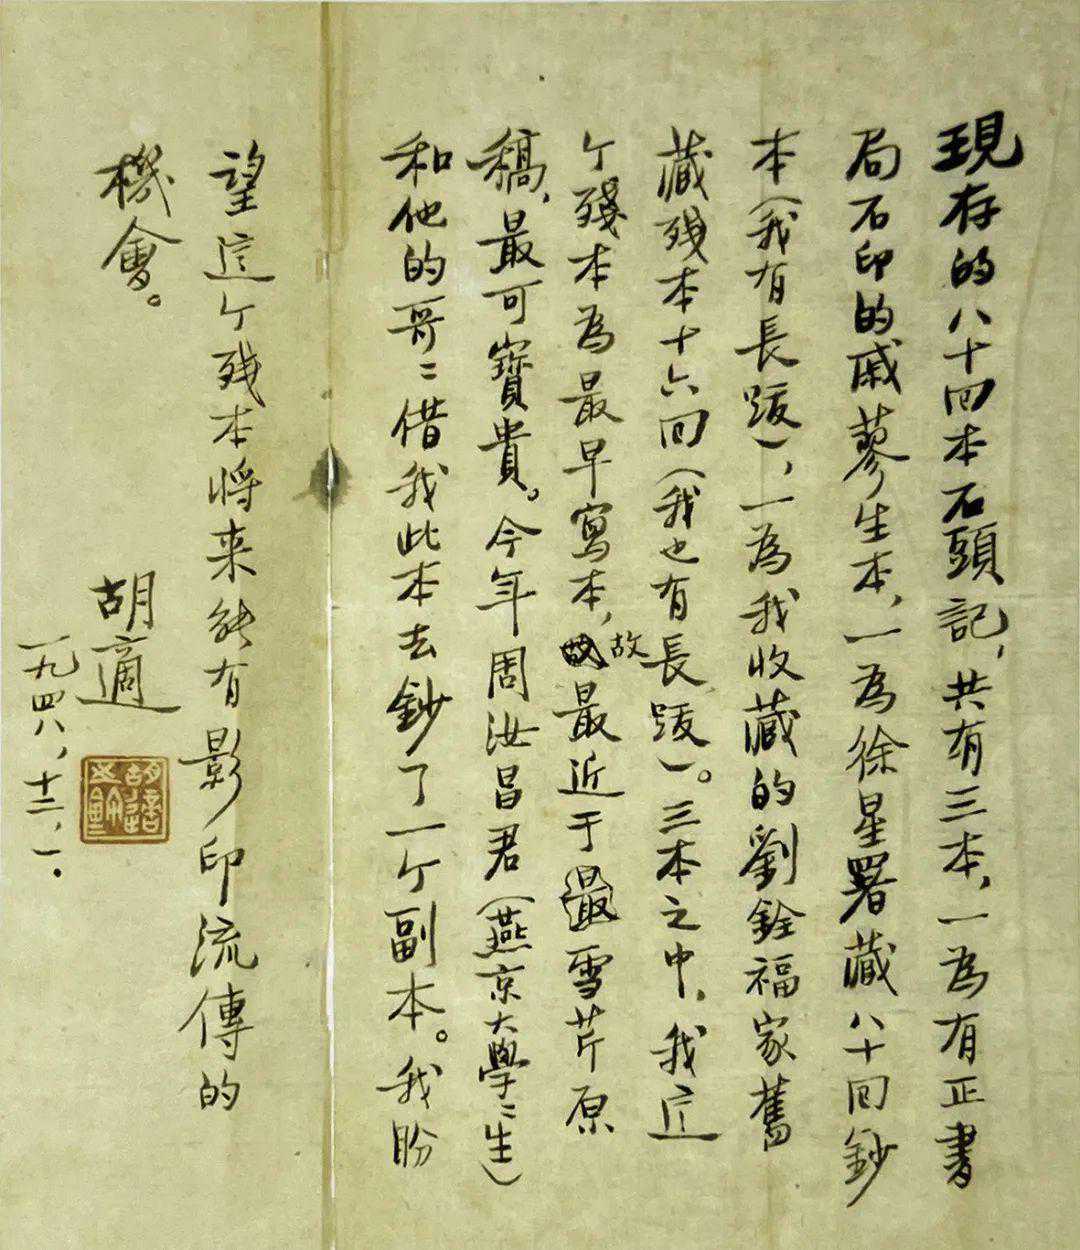 現存的八十回本石頭記，共有三本，一為有正書
局石印的戚蓼生本，一為徐星署藏八十回鈔
本（我有長跋），一為我收藏的劉銓福家舊
藏殘本十六回（我也有長跋）。三本之中，我这
个殘本為最早寫本，故最近于雪芹原
稿，最可寶貴。今年周汝昌君（燕京大學〻生）
和他的哥〻借我此本去鈔了一个副本。我盼
望這个残本將来能有影印流傳的
機會。
胡適
一九四八，十二，一．
胡適之鉨